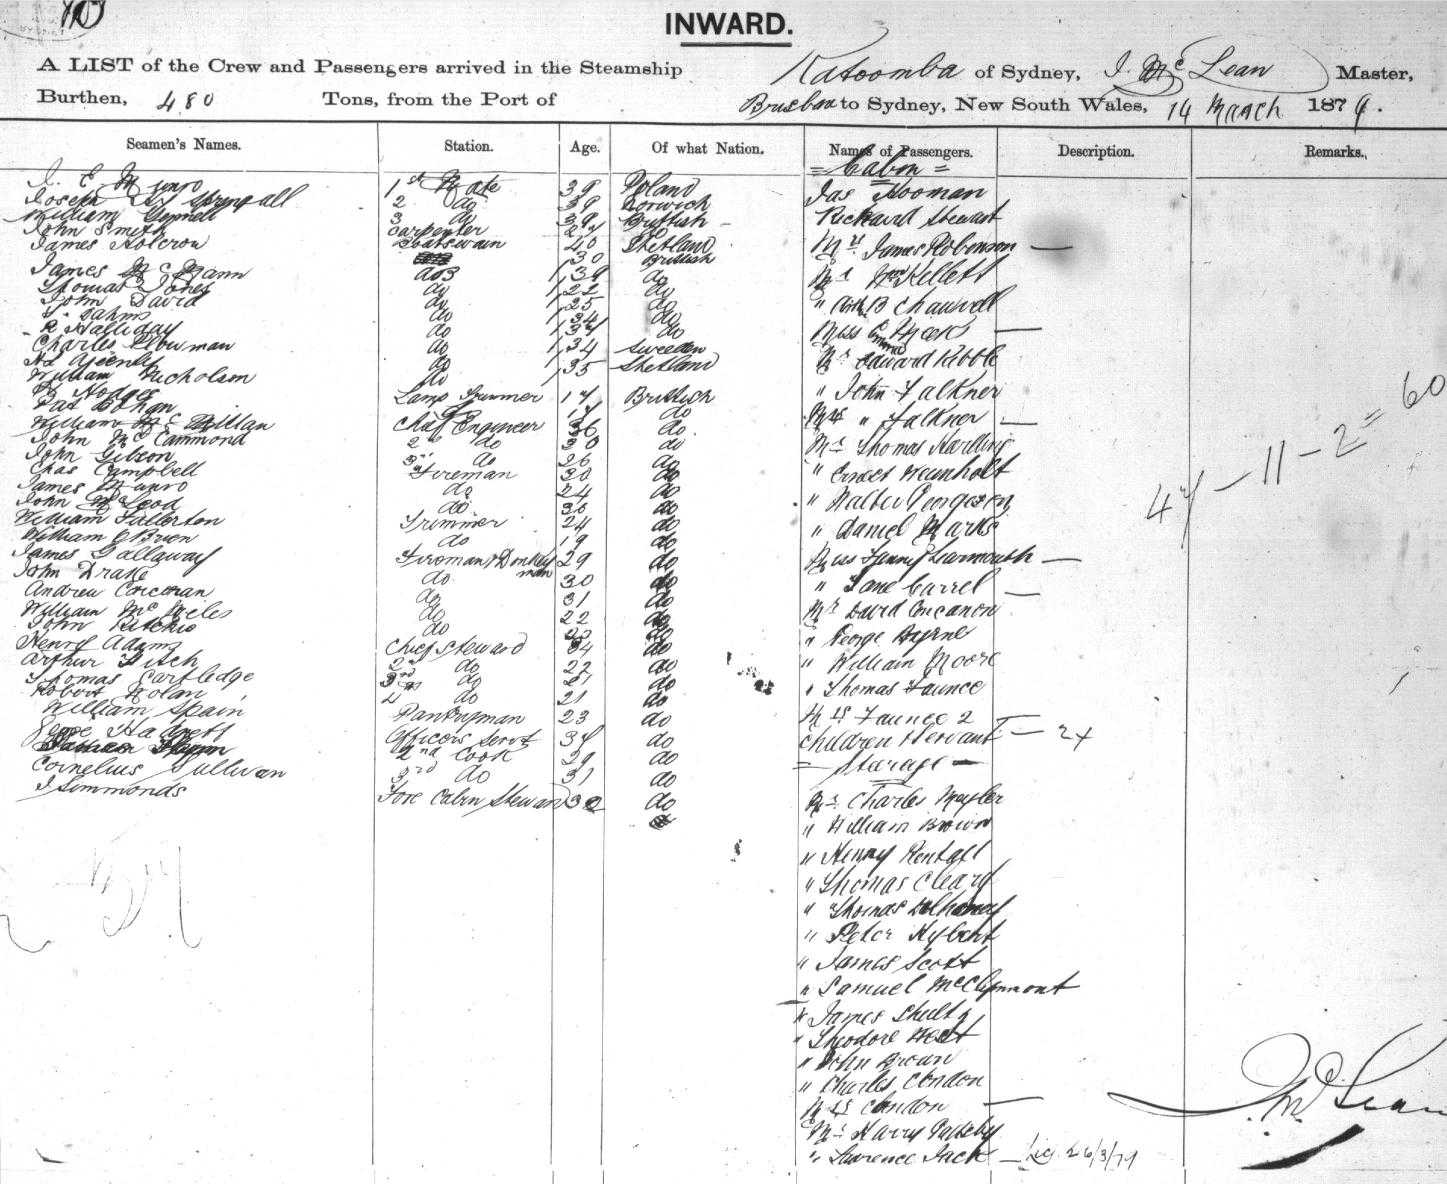 INWARD.
A LIST of the Crew and Passengers arrived in the Steamship Katoomba of Sydney, J. McLean Master,
Burthen, 480 Tons, from the Port of Brisbane to Sydney, New South Wales, 14 March 1879.
Seamen's Names. Station. Age. Of what Nation. Names of Passengers. Description. Remarks.
= Cabin =
J. E Munro 1st Mate 39
Joseph Springall 2 do 39 Norwich
William 3 do 39 British
John Smith Carpenter do
James Holcrow Boatswain 40 Shetland
30 British
James McMann do 39 do
Thomas Jones do 22 do
John David do 25 do
do 34 do
R Halliday do do
Charles do 34 Sweden
do 35 Shetland
William Nicholson do
Hodge Lamp Trimmer 17 British
Pat Bohan do
William McMillan Chief Engineer 36 do
John McCammond 2nd do 30 do
John Gibson 3rd do 26 do
Chas Campbell Fireman 30 do
James Munro do 24 do
John McLeod do 36 do
William Fullerton Trimmer 24 do
William O'Brien do 19 do
James Gallaway Fireman & Donkeyman 29 do
John Drake do 30 do
Andrew Corcoran do 31 do
William do 22 do
John Ritchie do do
Henry Adams Chief Steward 34 do
Arthur Fitch 2nd do 22 do
Thomas Cartledge 3rd do do
Robert Nolan do 21 do
William Spain Pantryman 23 do
Officers Servt do
2nd Cook 29 do
Cornelius Sullivan 3rd do 31 do
J Simmonds Fore Cabin Steward 32 do
Jas Hooman
Richard Stewart
Mrs James Robinson —
Mr Wm Kellett
" B Chauvell
Miss Myers —
Mr Edward Kibble
" John Falkner
Mrs " Falkner —
Mr Thomas Harding
" Ernest Weinholt
" Walter Georgeson
" Daniel Marks
Miss Fanny Learmouth —
" Jane Carrel —
Mr David Concanon
" George Byrne
" William Moore
" Thomas Faunce
Mrs Faunce 2
Children & Servant — 2x
— Steerage —
Mr Charles
" William Brown
" Henry Rentall
" Thomas Cleary
" Thomas
" Peter Hybert
" James Scott
" Samuel McClymont
" James Shultz
" Theodore West
" John Brown
" Charles Condon
Mrs Condon —
Mr Harry
" Lawrence Jack
47 – 11 – 2 = 60
J. McLean
26/3/79